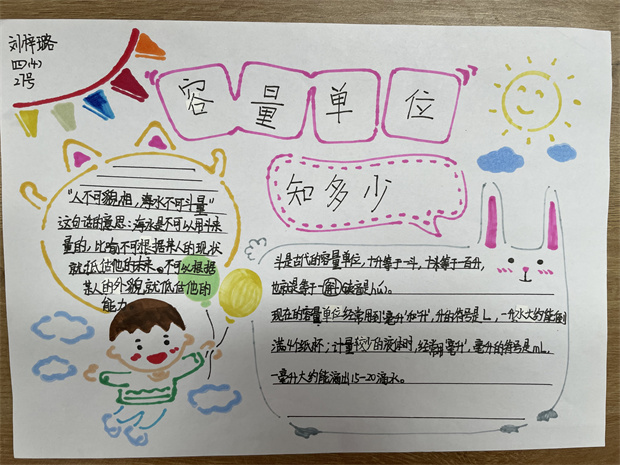 刘梓璐
四(4)
21号
容量单位
知多少
"人不可貌相,海水不可斗量"
这句话的意思:海水是不可以用斗来
量的,比喻不可根据某人的现状
就低估他的未来。不可以根据
某人的外貌,就低估他的
能力
斗是古代的容量单位,十升等于一斗,
现在的容量单位经常用到"毫升"和"升",升的符号是L,一升水大约能倒
满4个纸杯;计量较少的液体时,经常用"毫升",毫升的符号是mL,
一毫升大约能滴出15-20滴水。